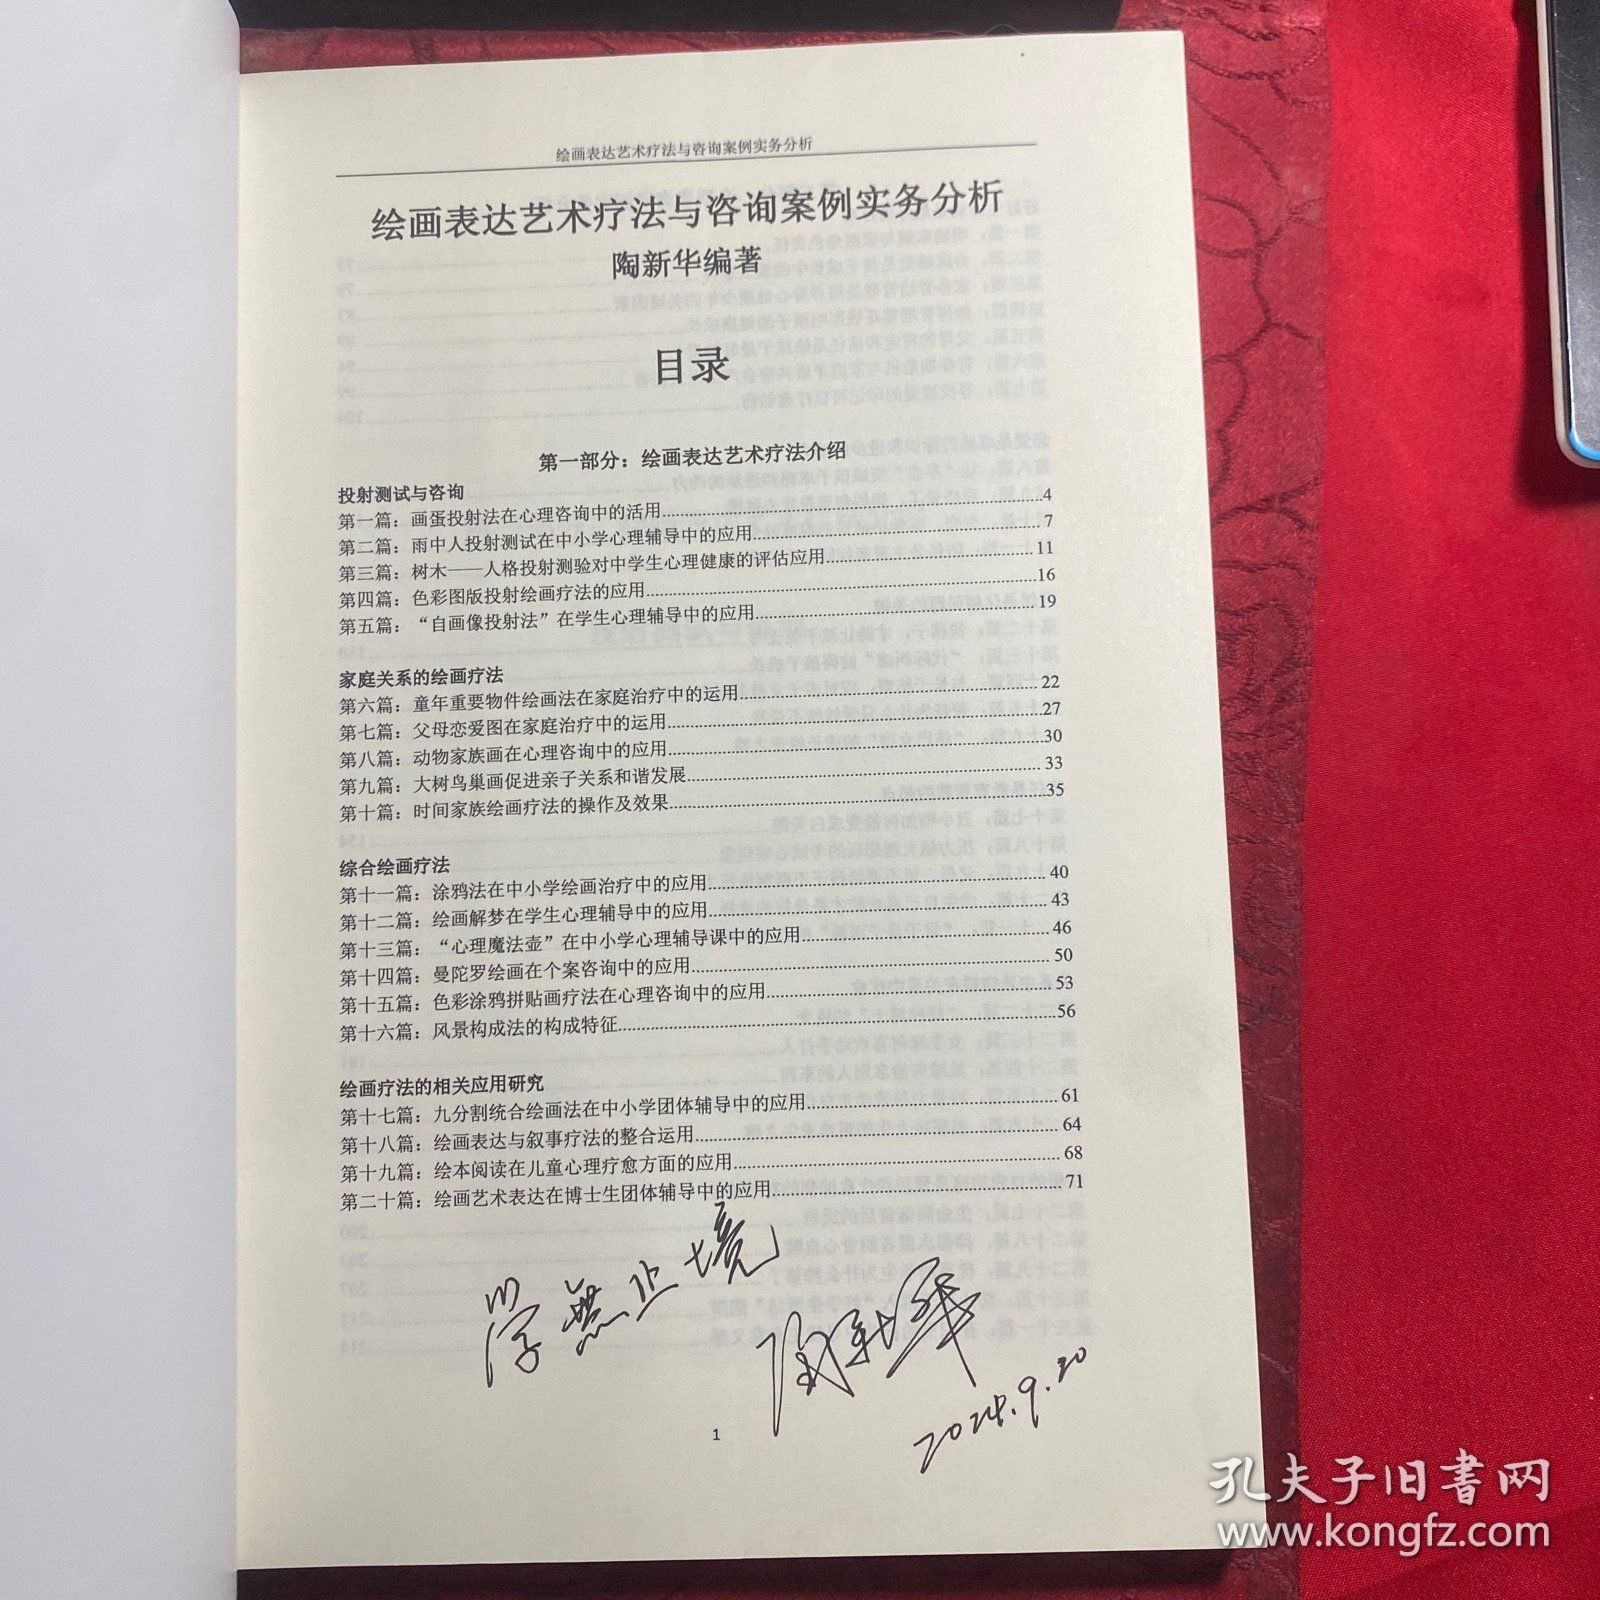 绘画表达艺术疗法与咨询案例实务分析
绘画表达艺术疗法与咨询案例实务分析
陶新华编著
目录
第一部分：绘画表达艺术疗法介绍
投射测试与咨询
第一篇：画蛋投射法在心理咨询中的活用4
第二篇：雨中人投射测试在中小学心理辅导中的应用7
第三篇：树木——人格投射测验对中学生心理健康的评估应用11
第四篇：色彩图版投射绘画疗法的应用16
第五篇：“自画像投射法”在学生心理辅导中的应用19
家庭关系的绘画疗法
第六篇：童年重要物件绘画法在家庭治疗中的运用22
第七篇：父母恋爱图在家庭治疗中的运用27
第八篇：动物家族画在心理咨询中的应用30
第九篇：大树鸟巢画促进亲子关系和谐发展33
第十篇：时间家族绘画疗法的操作及效果35
综合绘画疗法
第十一篇：涂鸦法在中小学绘画治疗中的应用40
第十二篇：绘画解梦在学生心理辅导中的应用43
第十三篇：“心理魔法壶”在中小学心理辅导课中的应用46
第十四篇：曼陀罗绘画在个案咨询中的应用50
第十五篇：色彩涂鸦拼贴画疗法在心理咨询中的应用53
第十六篇：风景构成法的构成特征56
绘画疗法的相关应用研究
第十七篇：九分割统合绘画法在中小学团体辅导中的应用61
第十八篇：绘画表达与叙事疗法的整合运用64
第十九篇：绘本阅读在儿童心理疗愈方面的应用68
第二十篇：绘画艺术表达在博士生团体辅导中的应用71
学無止境
陶新华
2024.9.20
1
孔夫子旧书网
www.kongfz.com